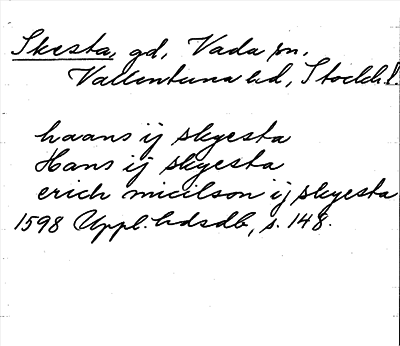 Skesta, gd, Vada sn.
Vallentuna hd, Stockh.l.
haans ij skyesta
Hans ij skyesta
erich micilson ij skyesta
1598 Uppl. hdsdb, s. 148.